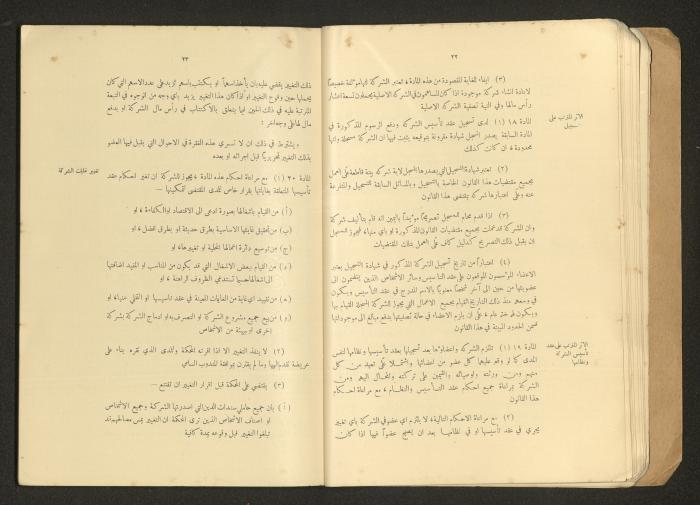 ٢٢
(٣) ايفاء للغاية المقصودة من هذه المادة، تعتبر الشركة انها مؤلفة خصيصاً
لاعادة انشاء شركة موجودة اذا كان المساهمون في الشركة الاصلية يملكون تسعة اعشار
رأس مالها وفي النية تصفية الشركة الاصلية
الاثر المترتب على
تسجيل
المادة ١٨ (١) لدى تسجيل عقد تأسيس الشركة ودفع الرسوم المذكورة في
المادة السابقة يصدر المسجل شهادة مقرونة بتوقيعه يثبت فيها ان الشركة مسجلة وانها
محدودة، ان كانت كذلك
(٢) تعتبر شهادة التسجيل التي يصدرها المسجل لاية شركة بينة قاطعة على العمل
بجميع مقتضيات هذا القانون الخاصة بالتسجيل وبالمسائل السابقة للتسجيل والمتفرعة
عنه وعلى اعتبارها شركة بمقتضى هذا القانون
(٣) اذا قدم محام للمسجل تصريحاً مؤيداً باليمين انه قام بتأليف شركة
وان الشركة قد عملت بجميع مقتضيات القانون المذكورة او باي منها، فيجوز للمسجل
ان يقبل ذلك التصريح كدليل كاف على العمل بتلك المقتضيات
(٤) اعتباراً من تاريخ تأسيس الشركة المذكور في شهادة التسجيل يعتبر
الاعضاء المؤسسون الموقعون على عقد التأسيس وسائر الاشخاص الذين ينضمون الى
عضويتها من حين الى آخر شخصاً معنوياً بالاسم المدرج في عقد التأسيس ويكون
في وسعه منذ ذلك التاريخ القيام بجميع الاعمال التي يجوز للشركة المسجلة القيام بها
ويكون له ختم عام، على ان يلزم الاعضاء في حالة تصفيتها بدفع مبالغ الى موجوداتها
ضمن الحدود المبينة في هذا القانون
الاثر المترتب على عقد
تأسيس الشركة
ونظامها
المادة ١٩ (١) تلتزم الشركة واعضاؤها بعد تسجيلها بعقد تأسيسها ونظامها لنفس
المدى كما لو وقع عليهما كل عضو من اعضائها واشتملا على تعهد من كل
منهم ومن ورثته واوصيائه والقيمين على تركته والمحال اليهم ومن
الشركة بمراعاة جميع احكام عقد التأسيس والنظام، مع مراعاة احكام
هذا القانون
(٢) مع مراعاة الاحكام التالية، لا يلتزم اي عضو في الشركة باي تغيير
يجري في عقد تأسيسها او في نظامها بعد ان يصبح عضواً فيها اذا كان
٢٣
ذلك التغيير يقضي عليه بان يأخذ اسهماً او يكتتب باسهم تزيد على عدد الاسهم التي كان
يحملها حين وقوع التغيير او اذا كان هذا التغيير يزيد باي وجه من الوجوه في التبعة
المترتبة عليه في ذلك الحين فيما يتعلق بالاكتتاب في رأس مال الشركة او بدفع
مال لها على وجه آخر :
ويشترط في ذلك ان لا تسري هذه الفقرة في الاحوال التي يقبل فيها العضو
بذلك التغيير تحريرياً قبل اجرائه او بعده
تغيير غايات الشركة
المادة ٢٠ (١) مع مراعاة احكام هذه المادة، يجوز للشركة ان تغير احكام عقد
تأسيسها المتعلقة بغاياتها بقرار خاص للمدى المقتضى لتمكينها —
(أ) من القيام باشغالها بصورة ادعى الى الاقتصاد او الكفاءة، او
(ب) من تحقيق غايتها الاساسية بطرق حديثة او بطرق افضل، او
(ج) من توسيع دائرة اعمالها المحلية او تغييرها، او
(د) من القيام ببعض الاشغال التي قد يكون من المناسب او المفيد اضافتها
الى اشغالها حسبما تستدعي الظروف الراهنة، او
(ه) من تقييد اي غاية من الغايات المعينة في عقد تأسيسها او التخلي عنها، او
(و) من بيع جميع مشروع الشركة او التصرف به او ادماج الشركة بشركة
اخرى او بهيئة من الاشخاص
(٢) لا ينفذ التغيير الا اذا اقرته المحكمة وللمدى الذي تقره بناء على
عريضة تقدم اليها وما لم يقترن بموافقة المندوب السامي
(٣) يقتضي على المحكمة قبل اقرار التغيير ان تقتنع —
(أ) بان جميع حاملي سندات الدين التي اصدرتها الشركة وجميع الاشخاص
او اصناف الاشخاص الذين ترى المحكمة ان التغيير يمس مصالحهم قد
تبلغوا التغيير قبل وقوعه بمدة كافية